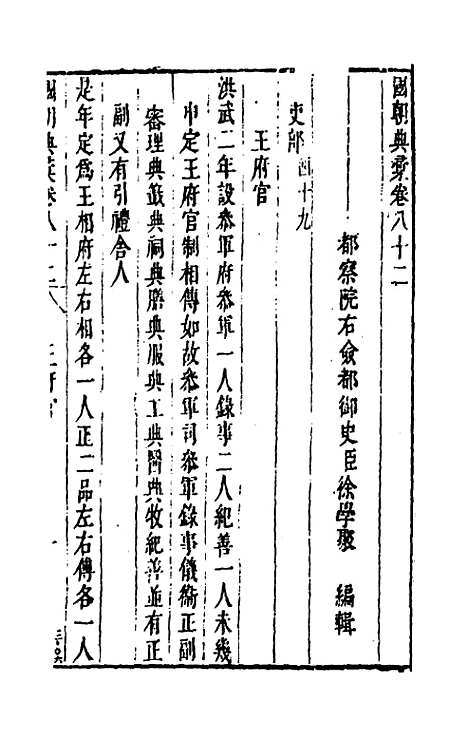 國朝典彙卷八十二
都察院右僉都御史臣徐學聚 編輯
吏部四十九
王府官
洪武二年設叅軍府叅軍一人錄事二人紀善一人未幾
申定王府官制相傳如故叅軍司叅軍錄事儀衛正副
審理典籤典祠典膳典服典工典醫典牧紀善並有正
副又有引禮舍人
是年定爲王相府左右相各一人正二品左右傅各一人
國朝典彙卷八十二 王府官 一